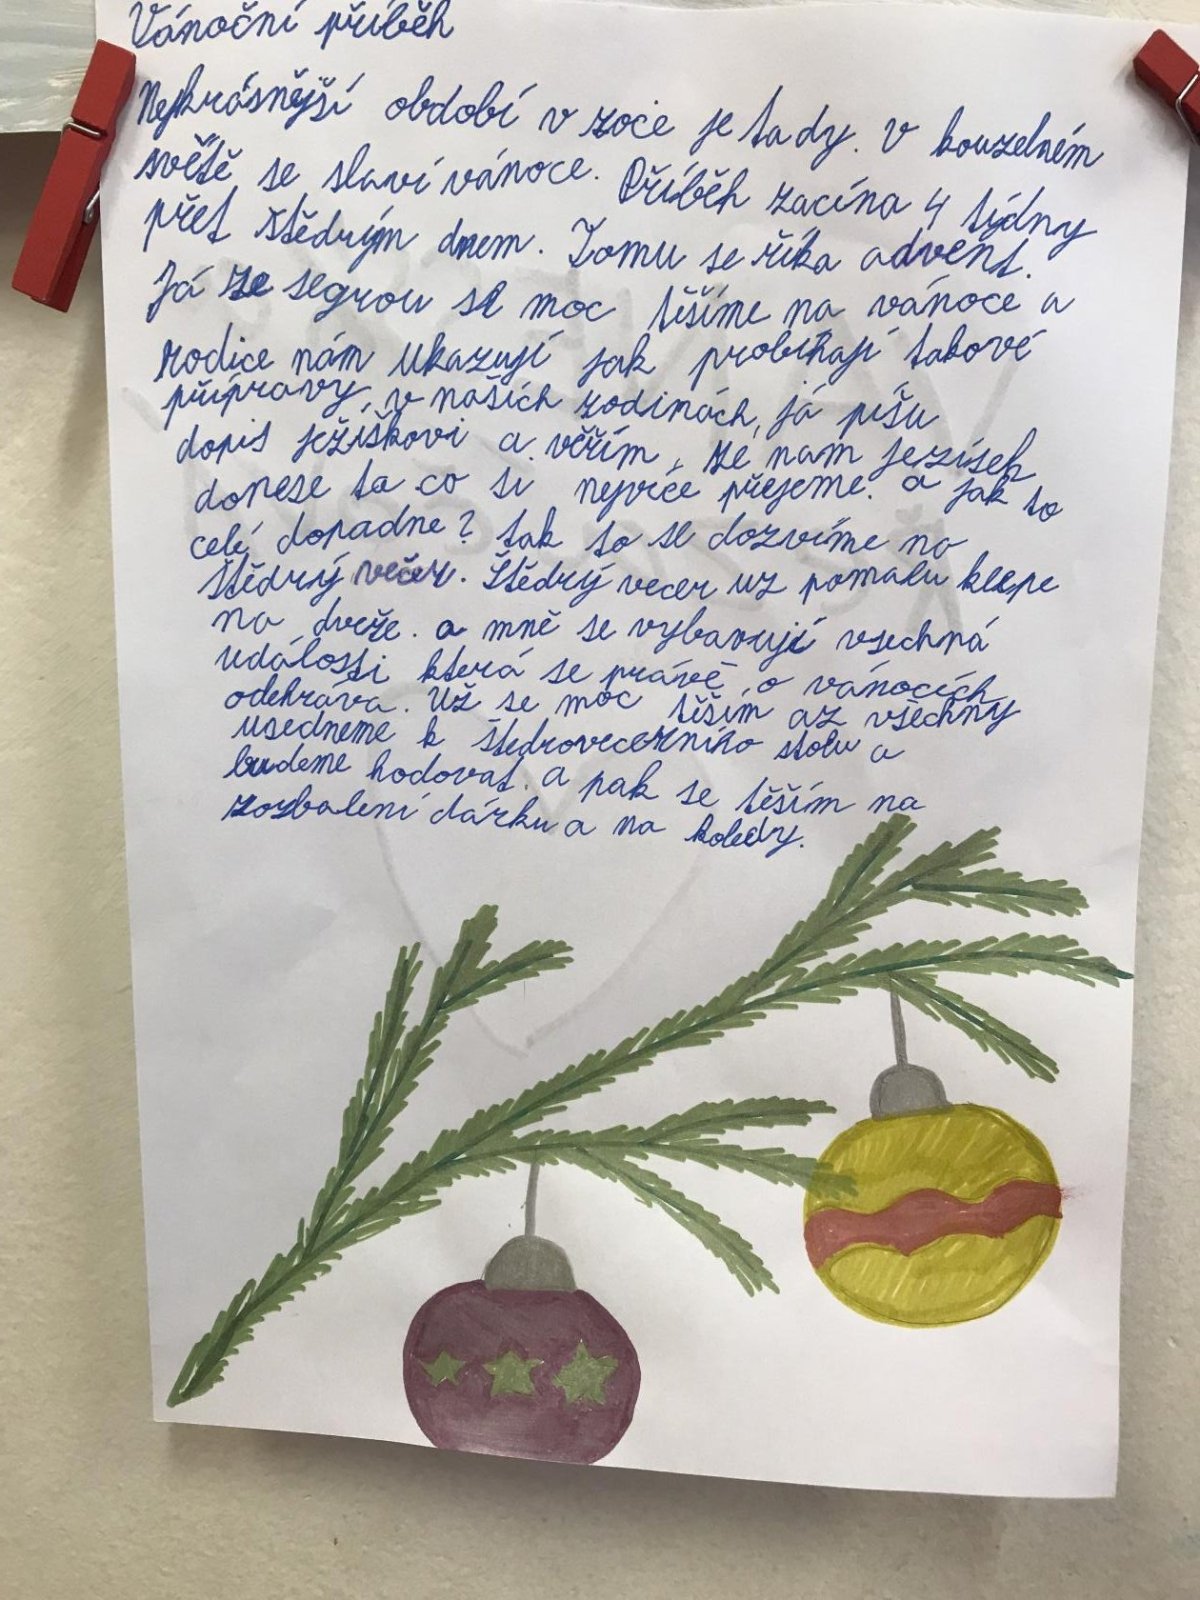 Vánoční příběh
Nejkrásnější období v roce je tady. v kouzelném
světě se slaví vánoce. Příběh zacína 4 tídny
přet štědrým dnem. Tomu se říka advent.
Já se segrou se moc těšíme na vánoce a
rodice nám ukazují jak probíhají takové
přípravy, v našich rodinách, já píšu
dopis ježíškovi a věřím, že nam jezísek
donese ta co si nejvíce přejeme. a jak to
celé dopadne? tak to se dozvíme na
štědrý večer. Štědrý vecer uz pomalu klepe
na dveře. a mně se vybavují vsechná
událossi která se právě o vánocích
odehráva. Už se moc těším az všechny
usedneme k štedrovecerního stolu a
budeme hodovat. a pak se těším na
rozbalení dárku a na koledy.